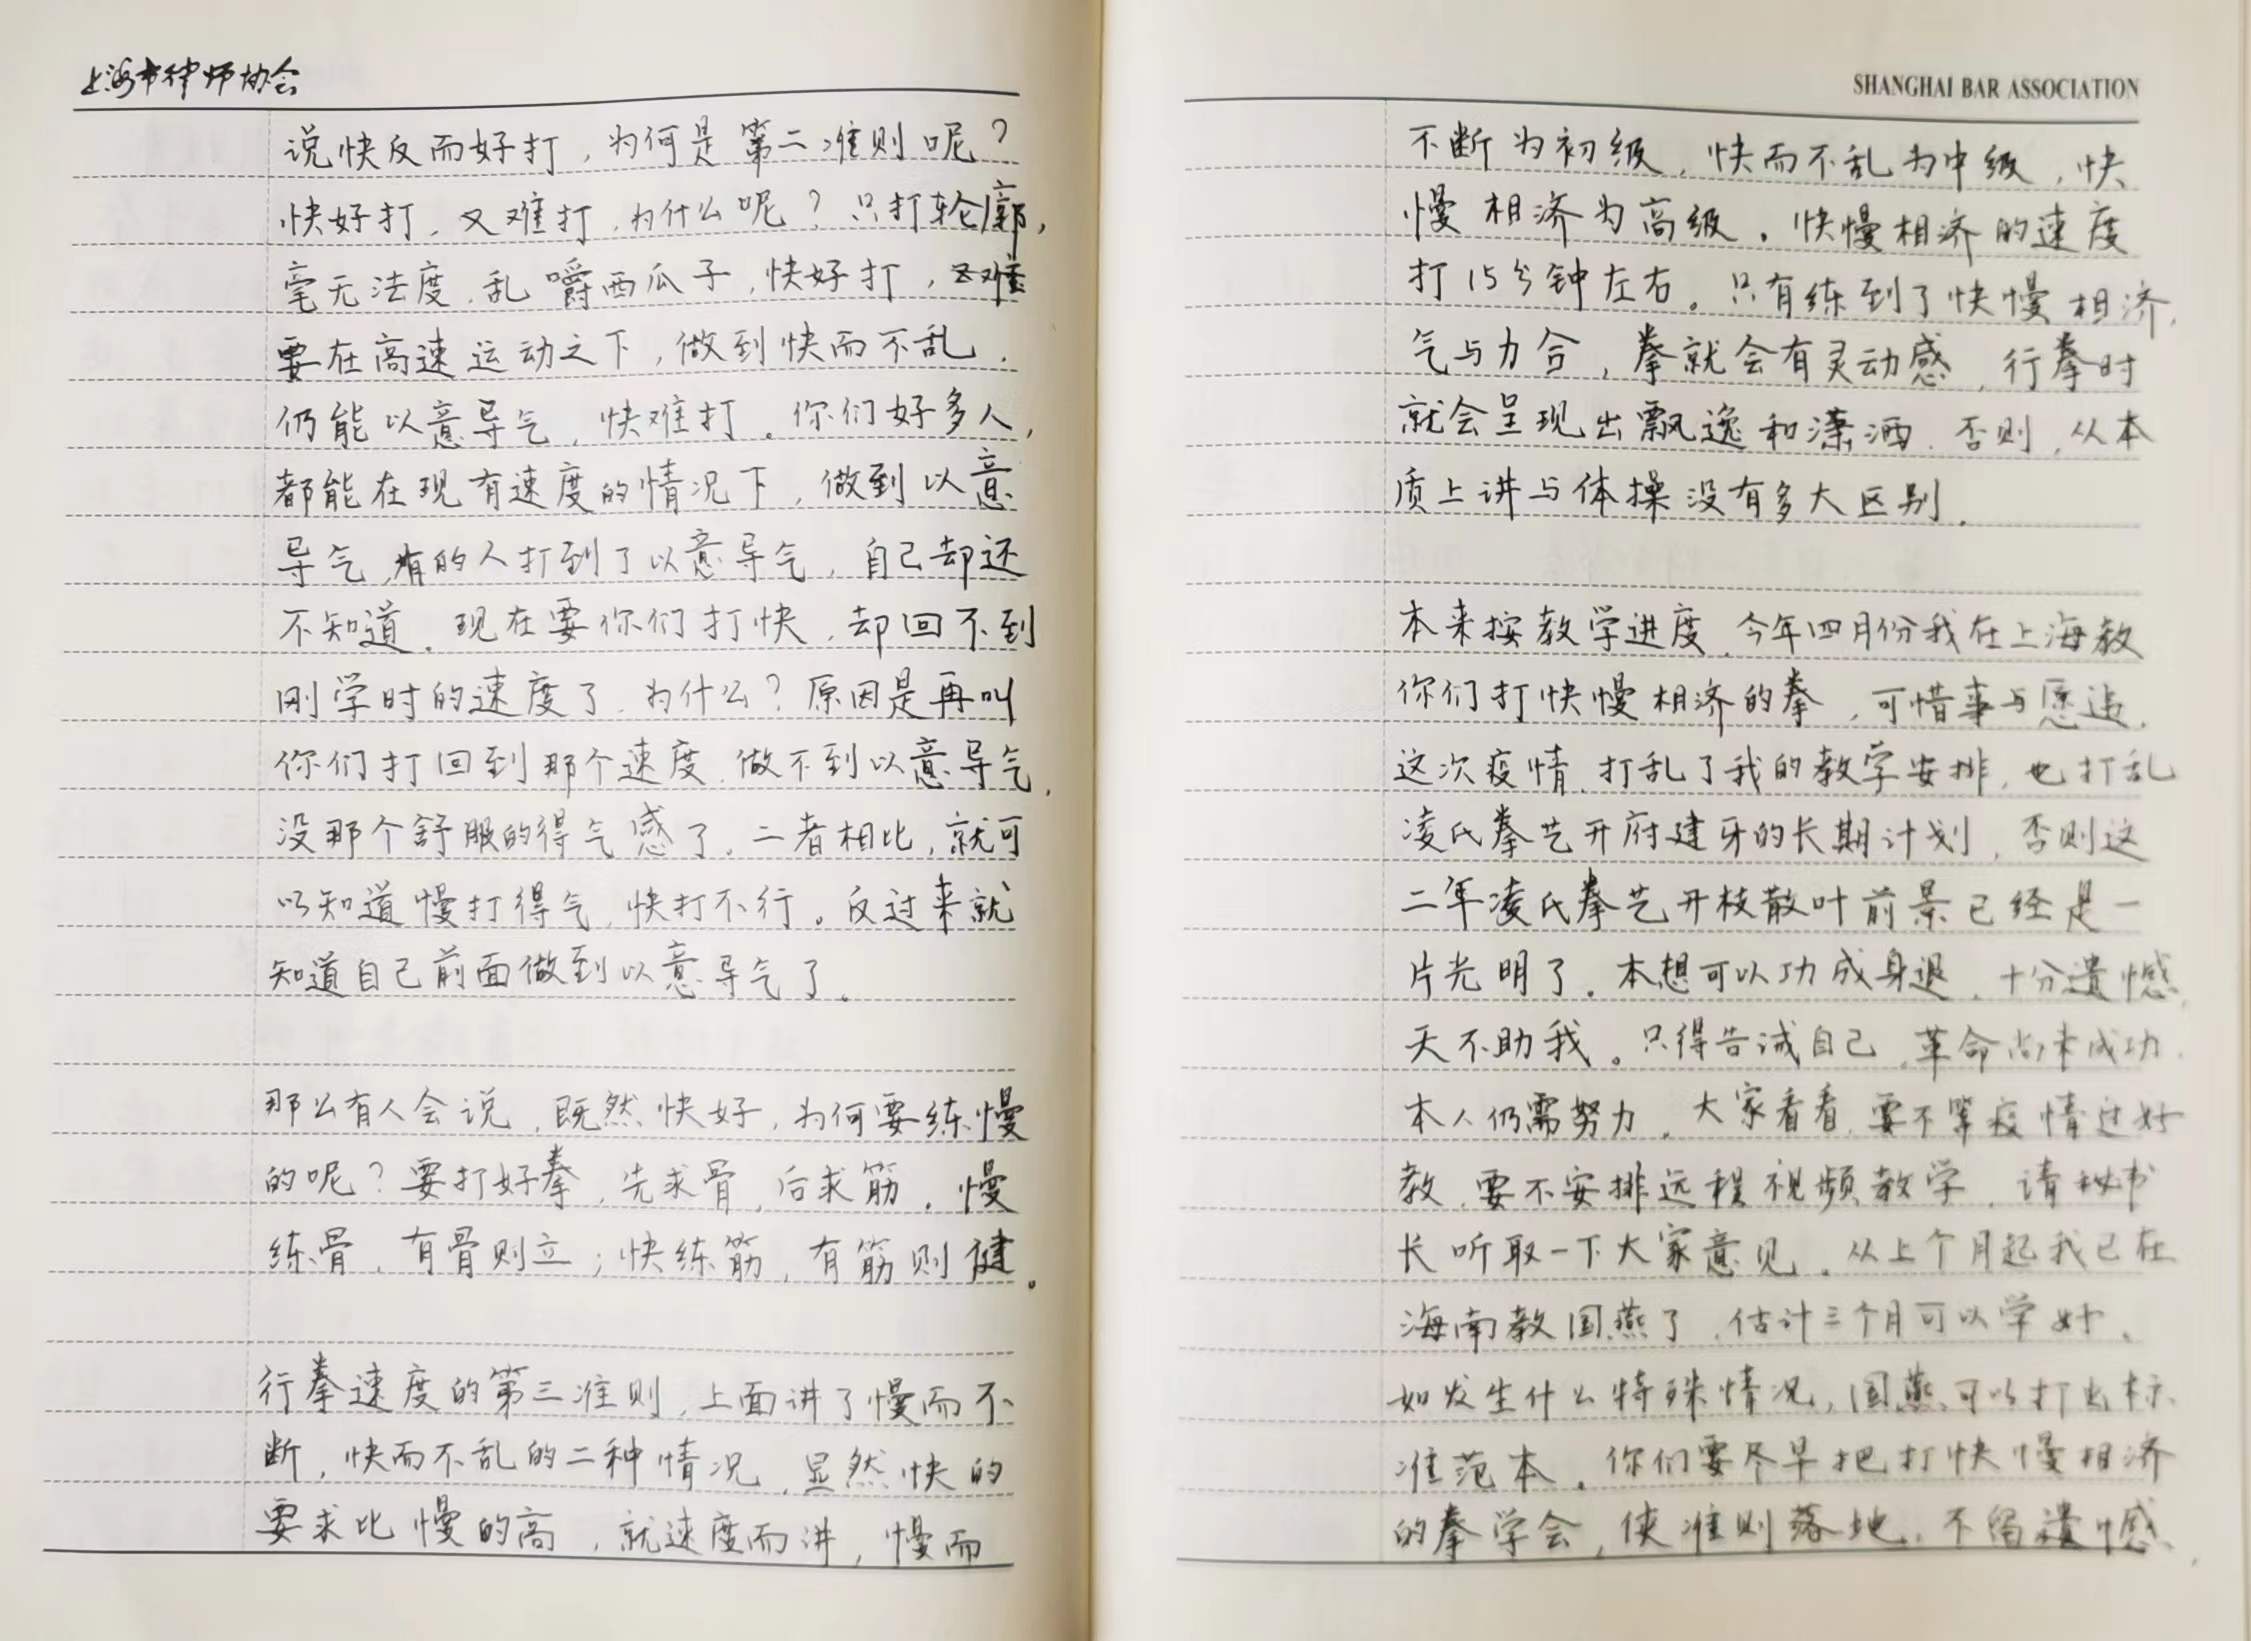 上海市律师协会
说快反而好打，为何是第二准则呢？
快好打，又难打，为什么呢？只打轮廓，
毫无法度，乱嚼西瓜子，快好打，又难
要在高速运动之下，做到快而不乱，
仍能以意导气，快难打。你们好多人，
都能在现有速度的情况下，做到以意
导气，有的人打到了以意导气，自己却还
不知道。现在要你们打快，却回不到
刚学时的速度了，为什么？原因是再叫
你们打回到那个速度，做不到以意导气，
没那个舒服的得气感了。二者相比，就可
以知道慢打得气，快打不行。反过来就
知道自己前面做到以意导气了。
那么有人会说，既然快好，为何要练慢
的呢？要打好拳，先求骨，后求筋。慢
练骨，有骨则立；快练筋，有筋则健。
行拳速度的第三准则，上面讲了慢而不
断，快而不乱的二种情况，显然快的
要求比慢的高，就速度而讲，慢而
SHANGHAI BAR ASSOCIATION
不断为初级，快而不乱为中级，快
慢相济为高级。快慢相济的速度
打15分钟左右。只有练到了快慢相济，
气与力合，拳就会有灵动感，行拳时
就会呈现出飘逸和潇洒，否则，从本
质上讲与体操没有多大区别。
本来按教学进度，今年四月份我在上海教
你们打快慢相济的拳，可惜事与愿违，
这次疫情，打乱了我的教学安排，也打乱
凌氏拳艺开府建牙的长期计划，否则这
二年凌氏拳艺开枝散叶前景已经是一
片光明了。本想可以功成身退，十分遗憾，
天不助我。只得告诫自己，革命尚未成功，
本人仍需努力。大家看看，要不等疫情过好
教，要不安排远程视频教学，请秘书
长听取一下大家意见。从上个月起我已在
海南教国燕了，估计三个月可以学好、
如发生什么特殊情况，国燕可以打出标
准范本。你们要尽早把打快慢相济
的拳学会，使准则落地，不留遗憾。